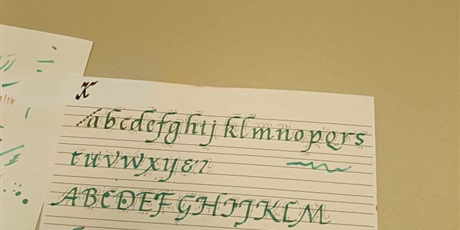 K
abcdefghijklmnopqrs
tuvwxy&z
ABCDEFGHIJKLM